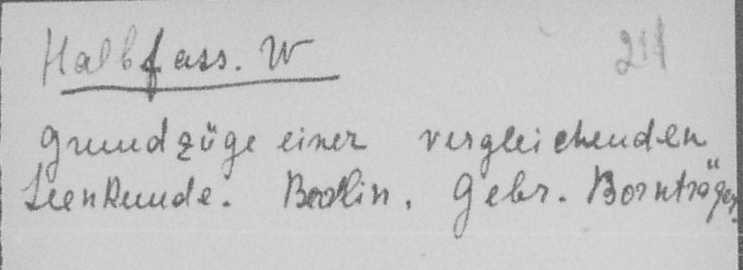 Halbfass. W
211
Grundzüge einer vergleichenden
Seenkunde. Berlin. Gebr. Bornträger.